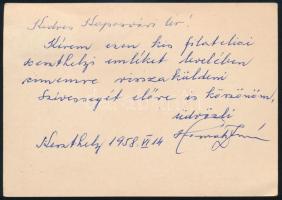 Kedves Kaposvári úr!
Kérem ezen kis filatéliai
keszthelyi emléket levelében
címemre vissza küldeni
Szívességét előre is köszönöm,
üdvözli
Keszthely 1958. VI 14